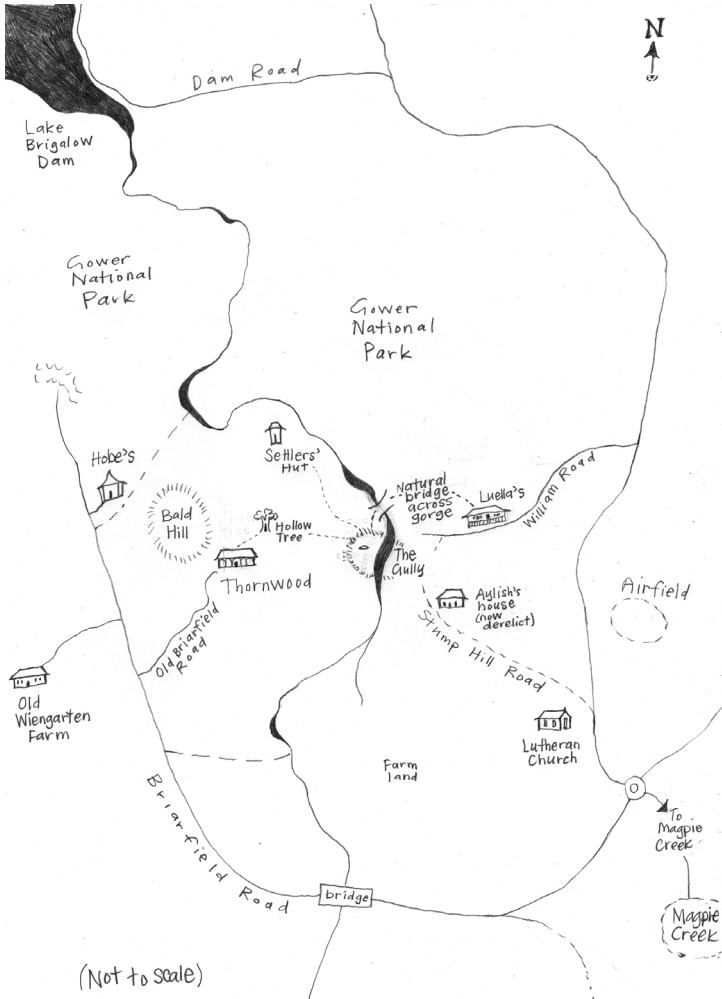 N
Dam Road
Lake
Brigalow
Dam
Gower
National
Park
Gower
National
Park
Hobe's
Settlers'
Hut
Natural
bridge
across
gorge
Luella's
William Road
Bald
Hill
Hollow
Tree
The
Gully
Thornwood
Aylish's
house
(now
derelict)
Airfield
Old Briarfield
Road
Stump Hill Road
Old
Wiengarten
Farm
Lutheran
Church
Farm
land
To
Magpie
Creek
Briarfield Road
bridge
Magpie
Creek
(Not to scale)